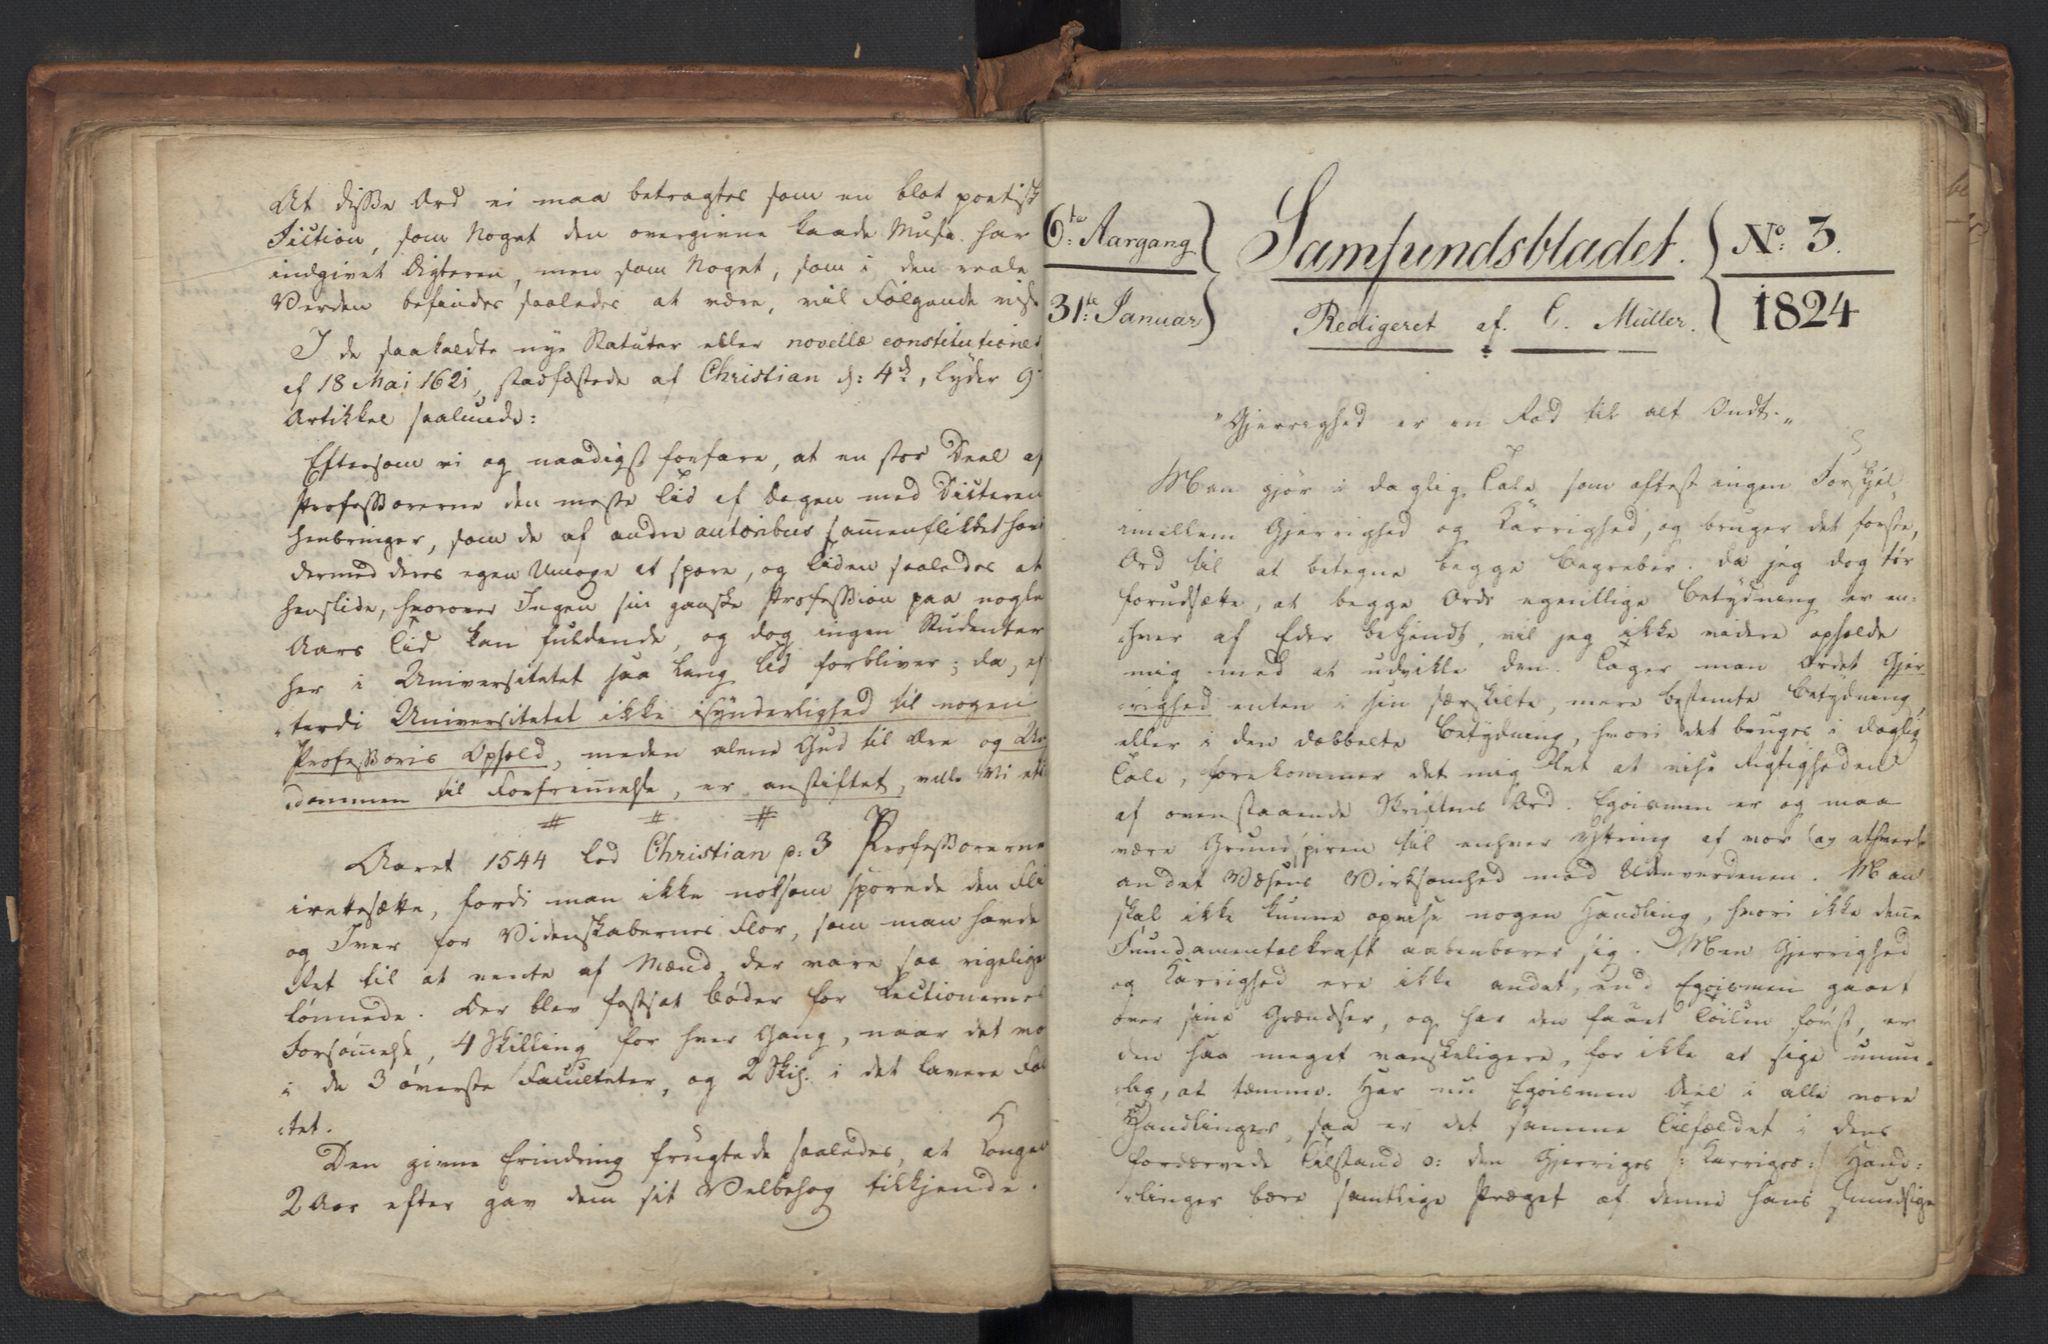 At disse Ord ei maa betragtes som en blot poetisk
Fiction, som Noget den overgivne kaade Muse har
indgivet Digteren, men som Noget, som i den reale
Verden befindes saaledes at være, vil Følgende vise
I de saakaldte nye Statuter eller novellæ constitutiones
af 18 Mai 1621, stadfæstede af Christian d: 4de, lyder 9
Artikkel saalunde:
Eftersom vi og naadigst forfare, at en stor Deel af
Professorerne den meste Tid af Dagen med Dicteren
henbringer, som de af andre autoribus sam̅enflikket have
dermed deres egen Umage at spare, og Tiden saaledes at
henslide, hvorover Ingen sin ganske Profession paa nogle
Aars Tid kan fuldende, og dog ingen Studenter
her i Universitetet saa lang Tid forbliver; da, ef
terdi Universitetet ikke isynderlighed til nogen
Professoris Ophold, meden alene Gud til Ære og
dommen til Forfrem̅else, er anstiftet, ville Vi
# # #
Aaret 1544 lod Christian p: 3 Professorerne
irettesætte, fordi man ikke noksom sporede den Fli
og Iver for Videnskabernes Flor, som man havde
Ret til at vente af Mænd, der vare saa rigelige
lønnede. Der blev fastsat Bøder for Lectionernes
Forsøm̅else, 4 Skilling for hver Gang, naar det va
i de 3 øverste Faculteter, og 2 Skil. i det lavere Fac
tet.
Den givne Erindring frugtede saaledes, at Kongen
2 Aar efter gav dem sit Velbehag tilkjende.
6te Aargang
31te Januar
Samfundsbladet.
Redigeret af C. Müller.
No: 3.
1824
"Gjerrighed er en Rod til alt Ondt."
Man gjør i daglig Tale som oftest ingen Forskjel
imellem Gjerrighed og Karrighed, og bruger det første,
Ord til at betegne begge Begreber. Da jeg dog tør
forudsætte, at begge Ords egentlige Betydning er en-
hver af Eder bekjendt, vil jeg ikke videre opholde
mig med at udvikle den. Tager man Ordet Gjer
righed enten i sin særskilte, mere bestemte Betydning,
eller i den dobbelte Betydning, hvori det bruges i daglig
Tale, forekommer det mig let at vise Rigtigheden
af ovenstaaende Skriftens Ord. Egoismen er og maa
være Grundspiren til enhver Yttring af vor og ethvert
andet Væsens Virksomhed med Udenverdenen. Man
skal ikke kunne opvise nogen Handling, hvori ikke den̅e
Fundamentalkraft aabenbarer sig. Men Gjerrighed
og Karrighed ere ikke andet, end Egoismen gaaet
over sine Grændser, og har den faaet Tøilen først, er
den saa meget vanskeligere, for ikke at sige umue-
lig, at tæmme. Har nu Egoismen Deel i alle vore
Handlinger, saa er det samme Tilfældet i dens
fordærvede Tilstand o: den Gjerriges /: Karriges :/ Hand-
linger bære samtlige Præget af denne hans smudsige